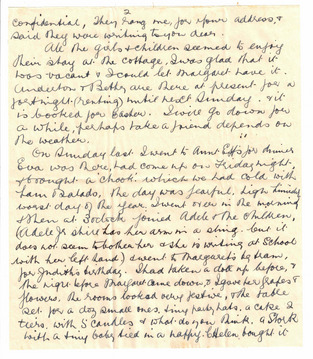 2
confidential, They rang me, for your address, &
said they were writing to you dear.
All the girls & children seemed to enjoy
their stay at the cottage, I was glad that it
was vacant & I could let Margaret have it.
Anderton & Betty are there at present for a
fortnight (renting) until next Sunday. & it
is booked for Easter. I we go down for
a while, perhaps take a friend depends on
the weather.
On Sunday last I went to Aunt Eff's for dinner
Eva was there, had come up on Friday night,
& brought a chook which we had cold with
ham & salads. The day was fearful, high
worst day of the year. I went over in the morning
& then at joined Adele & the Children,
(Adele Jr she has her arm in a sling. but it
does not seem to bother her & she is writing at School
with her left hand) I went to Margaret's by tram,
for Judith's birthday. I had taken a doll up before, &
the night before Margaret came down, & I gave her grapes &
flowers. The rooms looked very festive, & the table
set for a doz small ones, tiny party hats, a cake 2
tiers with 5 candles & what do you think. a Stork
with a tiny baby tied in a nappy. Helen bought it